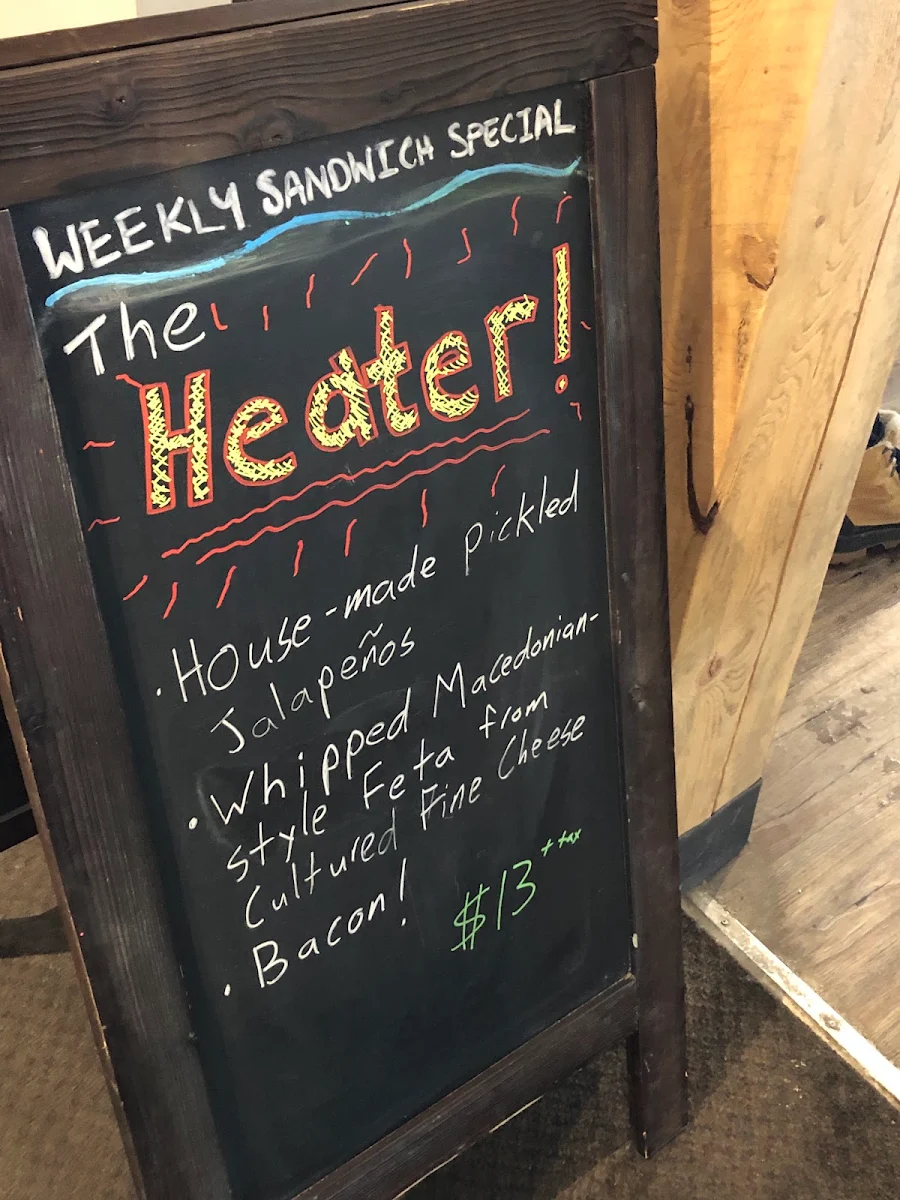 WEEKLY SANDWICH SPECIAL
The
Heater!
· House-made pickled
Jalapeños
· Whipped Macedonian-
style Feta from
Cultured Fine Cheese
· Bacon!
$13 + tax